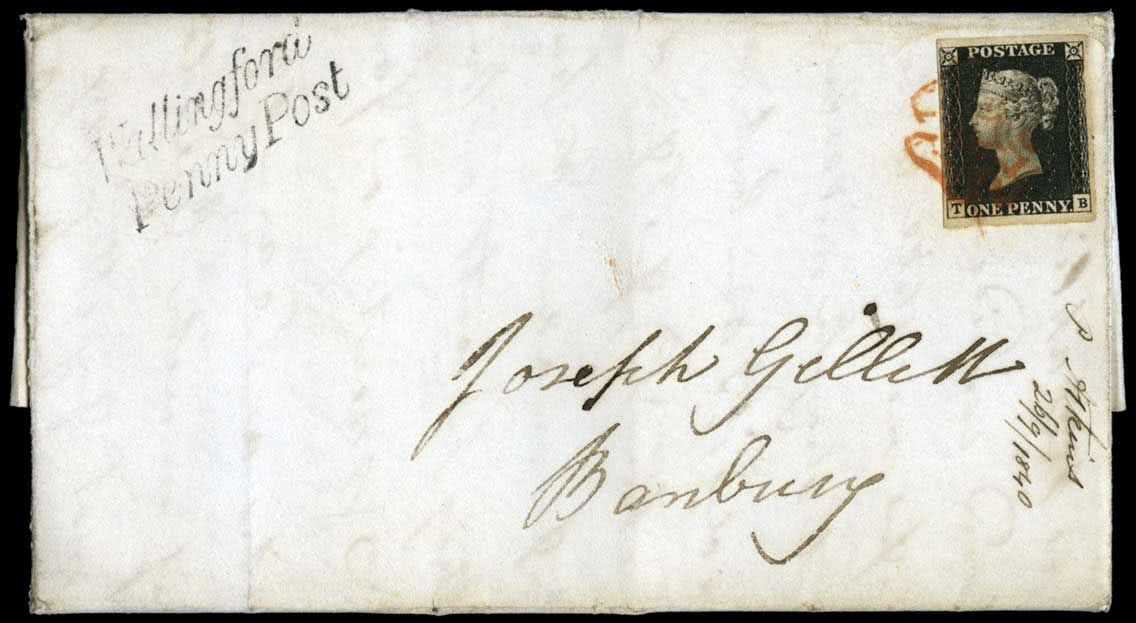 Wallingford
Penny Post
POSTAGE
T ONE PENNY B
Joseph Gillett
Banbury
26/9/1840